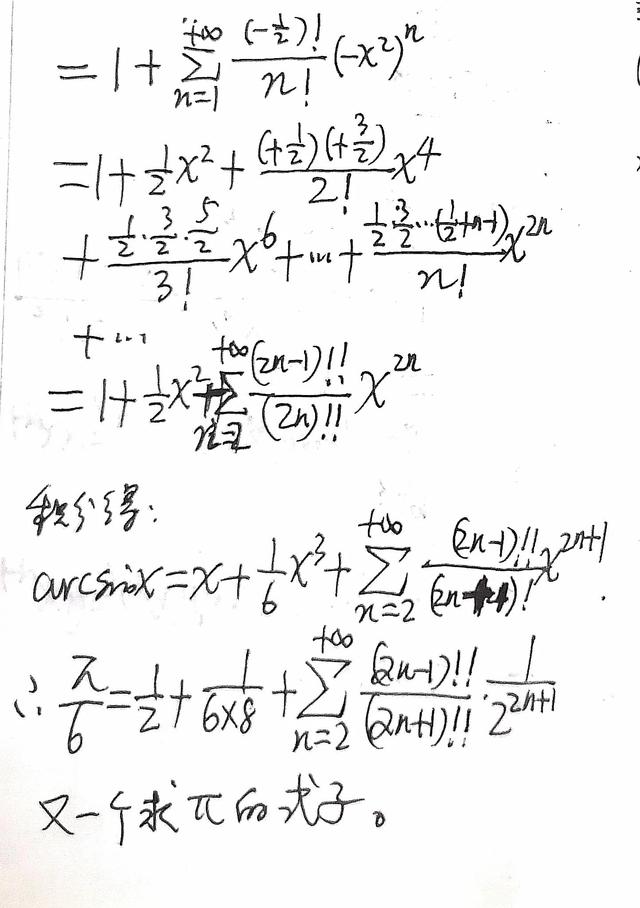 = 1 + \sum_{n=1}^{+\infty} \frac{(-\frac{1}{2})!}{n!} (-x^2)^n
= 1 + \frac{1}{2}x^2 + \frac{(+\frac{1}{2})(+\frac{3}{2})}{2!} x^4
+ \frac{\frac{1}{2}\cdot\frac{3}{2}\cdot\frac{5}{2}}{3!} x^6 + \cdots + \frac{\frac{1}{2}\cdot\frac{3}{2}\cdots(\frac{1}{2}+n-1)}{n!} x^{2n}
+ \cdots
= 1 + \frac{1}{2}x^2 + \sum_{n=2}^{+\infty} \frac{(2n-1)!!}{(2n)!!} x^{2n}
积分得:
arcsinx = x + \frac{1}{6}x^3 + \sum_{n=2}^{+\infty} \frac{(2n-1)!!}{(2n+1)!} x^{2n+1}.
∴ \frac{π}{6} = \frac{1}{2} + \frac{1}{6×8} + \sum_{n=2}^{+\infty} \frac{(2n-1)!!}{(2n+1)!!} \cdot \frac{1}{2^{2n+1}}
又一个求π的式子。